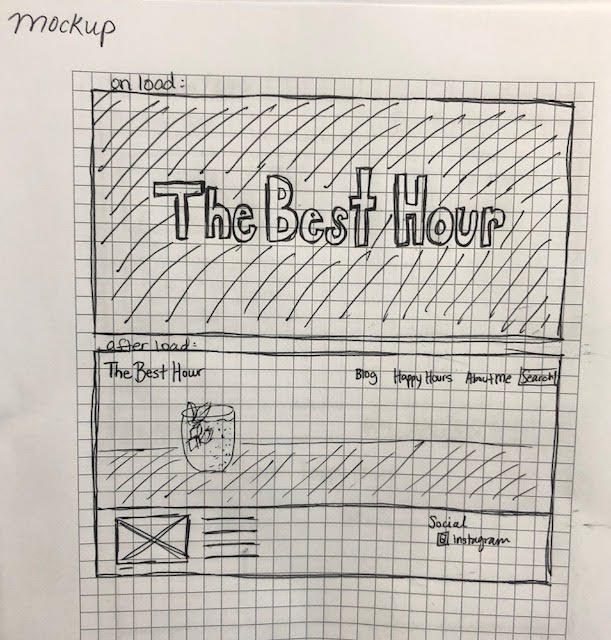 Mockup
on load:
The Best Hour
after load:
The Best Hour Blog Happy Hours About Me Search
Social
Instagram